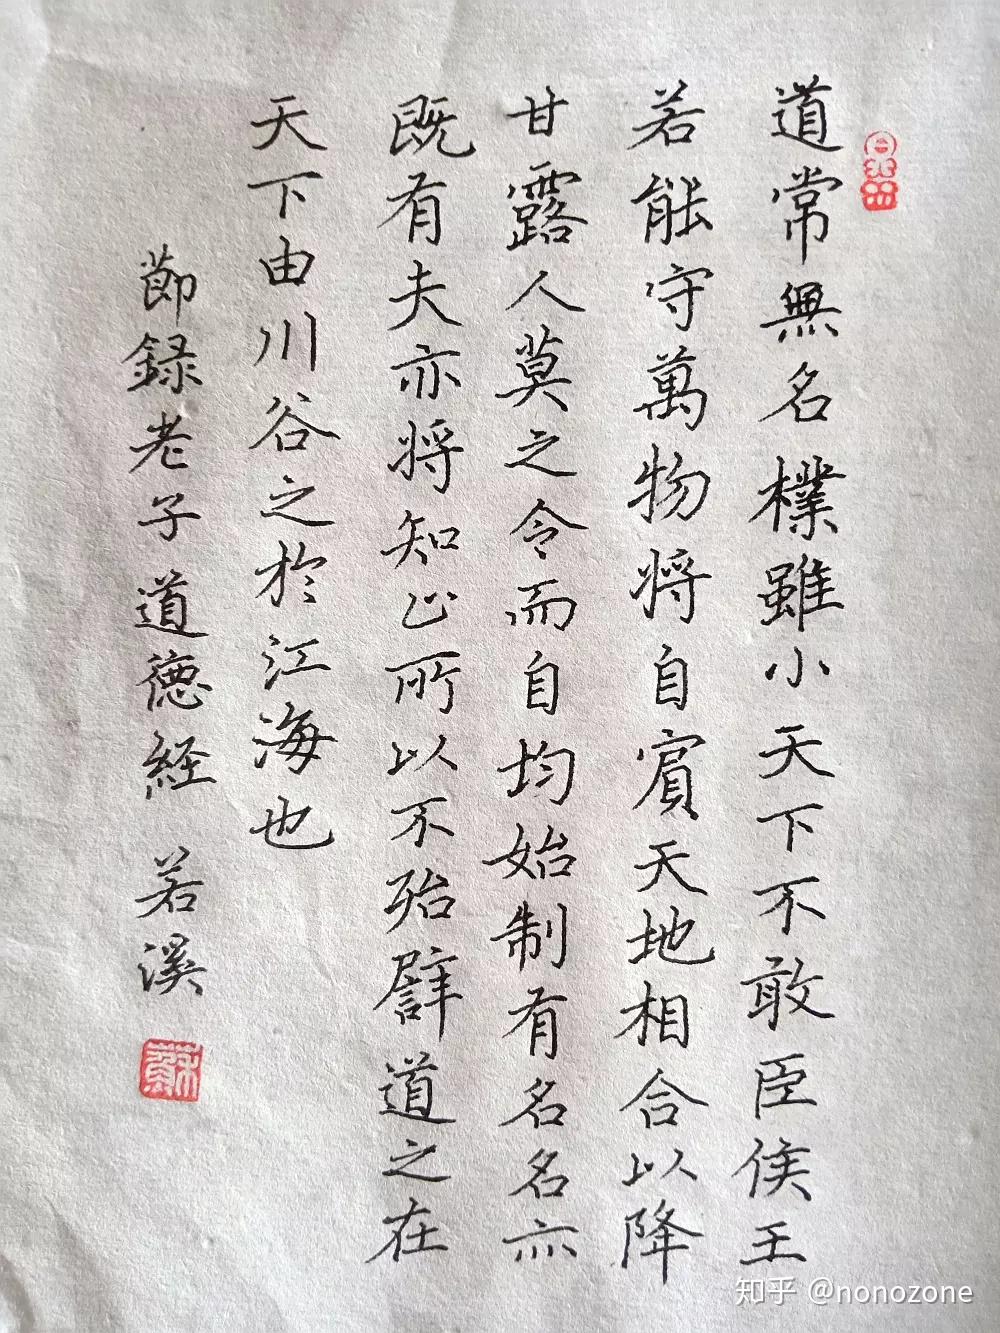 道常無名樸雖小天下不敢臣侯王
若能守萬物將自賓天地相合以降
甘露人莫之令而自均始制有名名亦
既有夫亦將知止所以不殆譬道之在
天下由川谷之於江海也
節録老子道德経 若溪
蘇
知乎 @nonozone